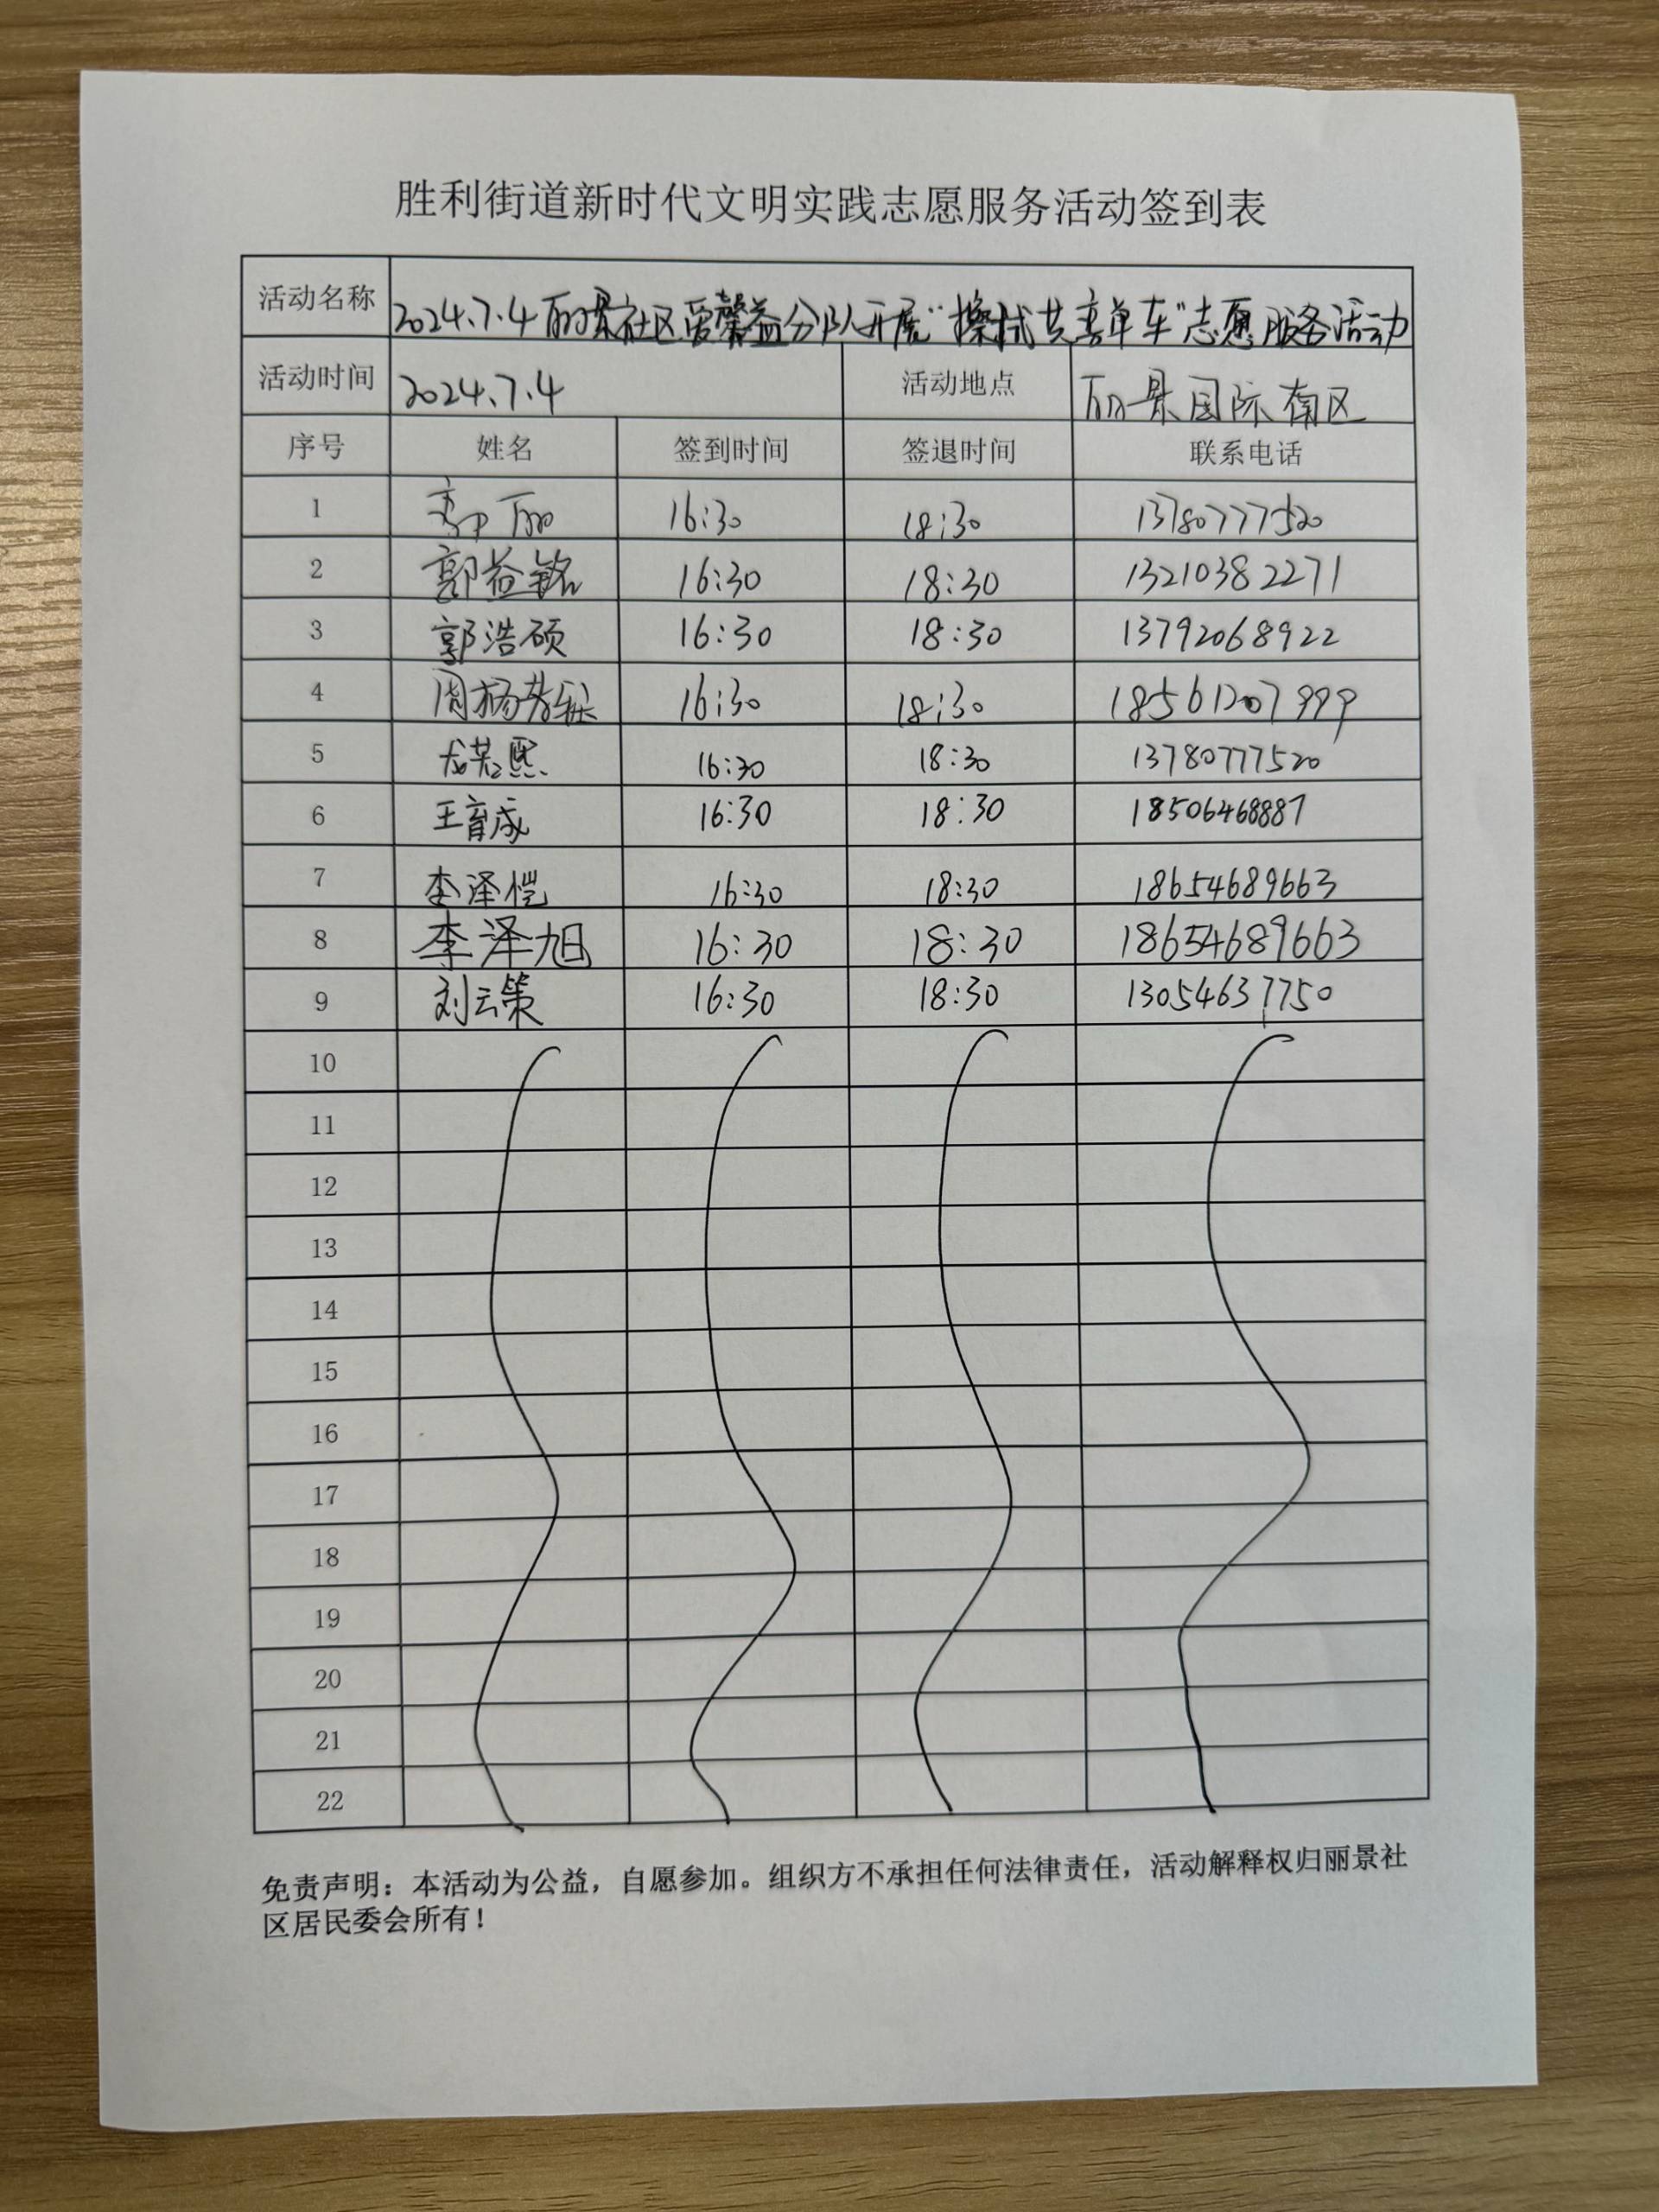 胜利街道新时代文明实践志愿服务活动签到表
活动名称 2024.7.4丽景社区爱馨益分队开展“擦拭共享单车”志愿服务活动
活动时间 2024.7.4 活动地点 丽景国际南区
序号 姓名 签到时间 签退时间 联系电话
1 丽 16:30 18:30 13780777520
2 郭益铭 16:30 18:30 13210382271
3 郭浩硕 16:30 18:30 13792068922
4 周杨 16:30 18:30 18561207999
5 尤若熙 16:30 18:30 13780777520
6 王育成 16:30 18:30 18506468887
7 李泽恺 16:30 18:30 18654689663
8 李泽旭 16:30 18:30 18654689663
9 刘云策 16:30 18:30 13054637750
10
11
12
13
14
15
16
17
18
19
20
21
22
免责声明：本活动为公益，自愿参加。组织方不承担任何法律责任，活动解释权归丽景社
区居民委会所有！